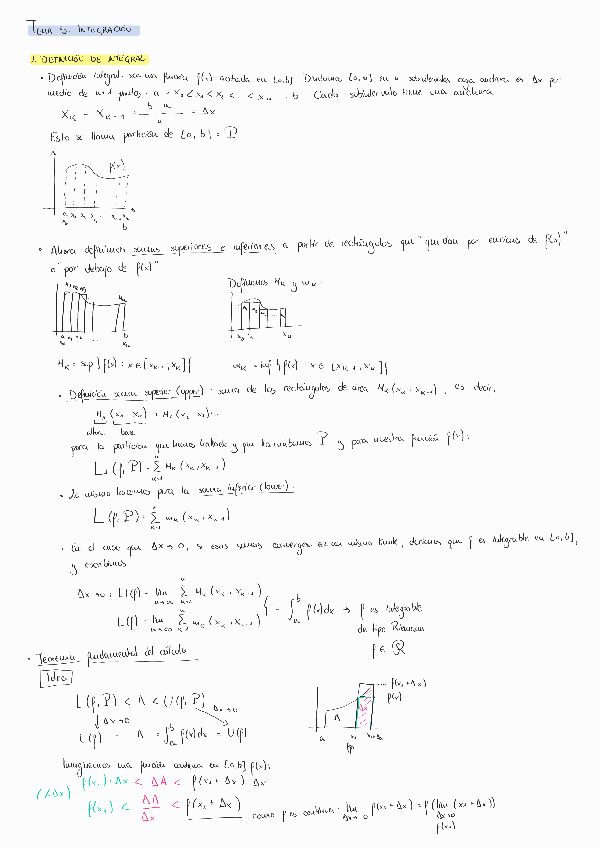 TEMA 5. INTEGRACIÓN
1. DEFINICIÓN DE INTEGRAL
• Definición integral: sea una función f(x) acotada en [a,b]. Dividimos [a,b] en n subintervalos cuya anchura es Δx por
medio de n+1 puntos: a = x₀ < x₁ < x₂ < ... < xₙ = b. Cada subintervalo tiene una anchura
x_K - x_{K-1} = (b-a)/n = Δx
Esto se llama partición de [a,b] = P
f(x)
• Ahora definimos sumas superiores e inferiores a partir de rectángulos que "quedan por encima de f(x)"
o "por debajo de f(x)"
Definimos M_K y m_K.
M_K = sup {f(x): x ∈ [x_{K-1}, x_K]}
m_K = inf {f(x): x ∈ [x_{K-1}, x_K]}
• Definición suma superior (upper): suma de los rectángulos de área M_K (x_K - x_{K-1}), es decir,
M₁ (x₁ - x₀) + M₂ (x₂ - x₁)...
altura base
para la partición que hemos tratado y que llamábamos P y para nuestra función f(x):
U (f, P) = Σ M_K (x_K - x_{K-1})
• Lo mismo hacemos para la suma inferior (lower):
L (f, P) = Σ m_K (x_K - x_{K-1})
• En el caso que Δx → 0, si esas sumas convergen en un mismo límite, decimos que f es integrable en [a,b],
y escribimos
Δx → 0: U(f) = lim n→∞ Σ M_K (x_K - x_{K-1})
L(f) = lim n→∞ Σ m_K (x_K - x_{K-1})
} = ∫_a^b f(x)dx → f es integrable
de tipo Riemann
f ∈ R
• Teorema fundamental del cálculo
Idea
L(f, P) < A < U(f, P)
↓ Δx→0 Δx→0
L(f) = A = ∫_a^b f(x)dx = U(f)
f(x₁+Δx)
f(x₁)
A
a
Imaginemos una función continua en [a,b] f(x):
f(x₁)·Δx < ΔA < f(x₁+Δx) Δx
(/Δx)
f(x₁) < ΔA/Δx < f(x₁+Δx)
como f es continua: lim Δx→0 f(x₁+Δx) = f(lim Δx→0 (x₁+Δx))
f(x₁)